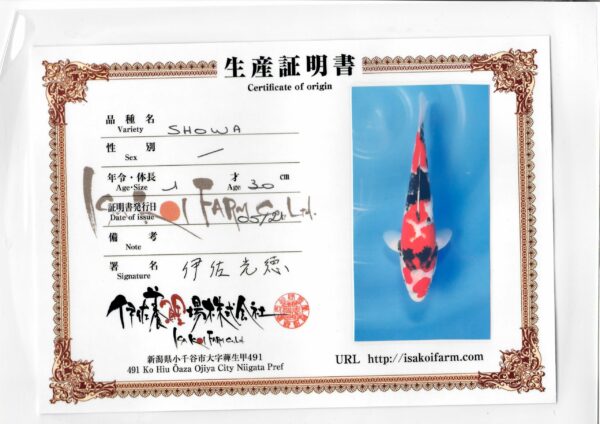 生産証明書
Certificate of origin
品種名
Variety SHOWA
性別
Sex /
年令・体長 才 cm
Age·Size 1 Age 30
証明書発行日
Date of issue
備考
Note
署名 伊佐光徳
Signature
Isa Koi Farm Co. Ltd.
伊佐養鯉場株式会社
Isa Koi Farm Co. Ltd
新潟県小千谷市大字薭生甲491
491 Ko Hiu Ōaza Ojiya City Niigata Pref
URL http://isakoifarm.com